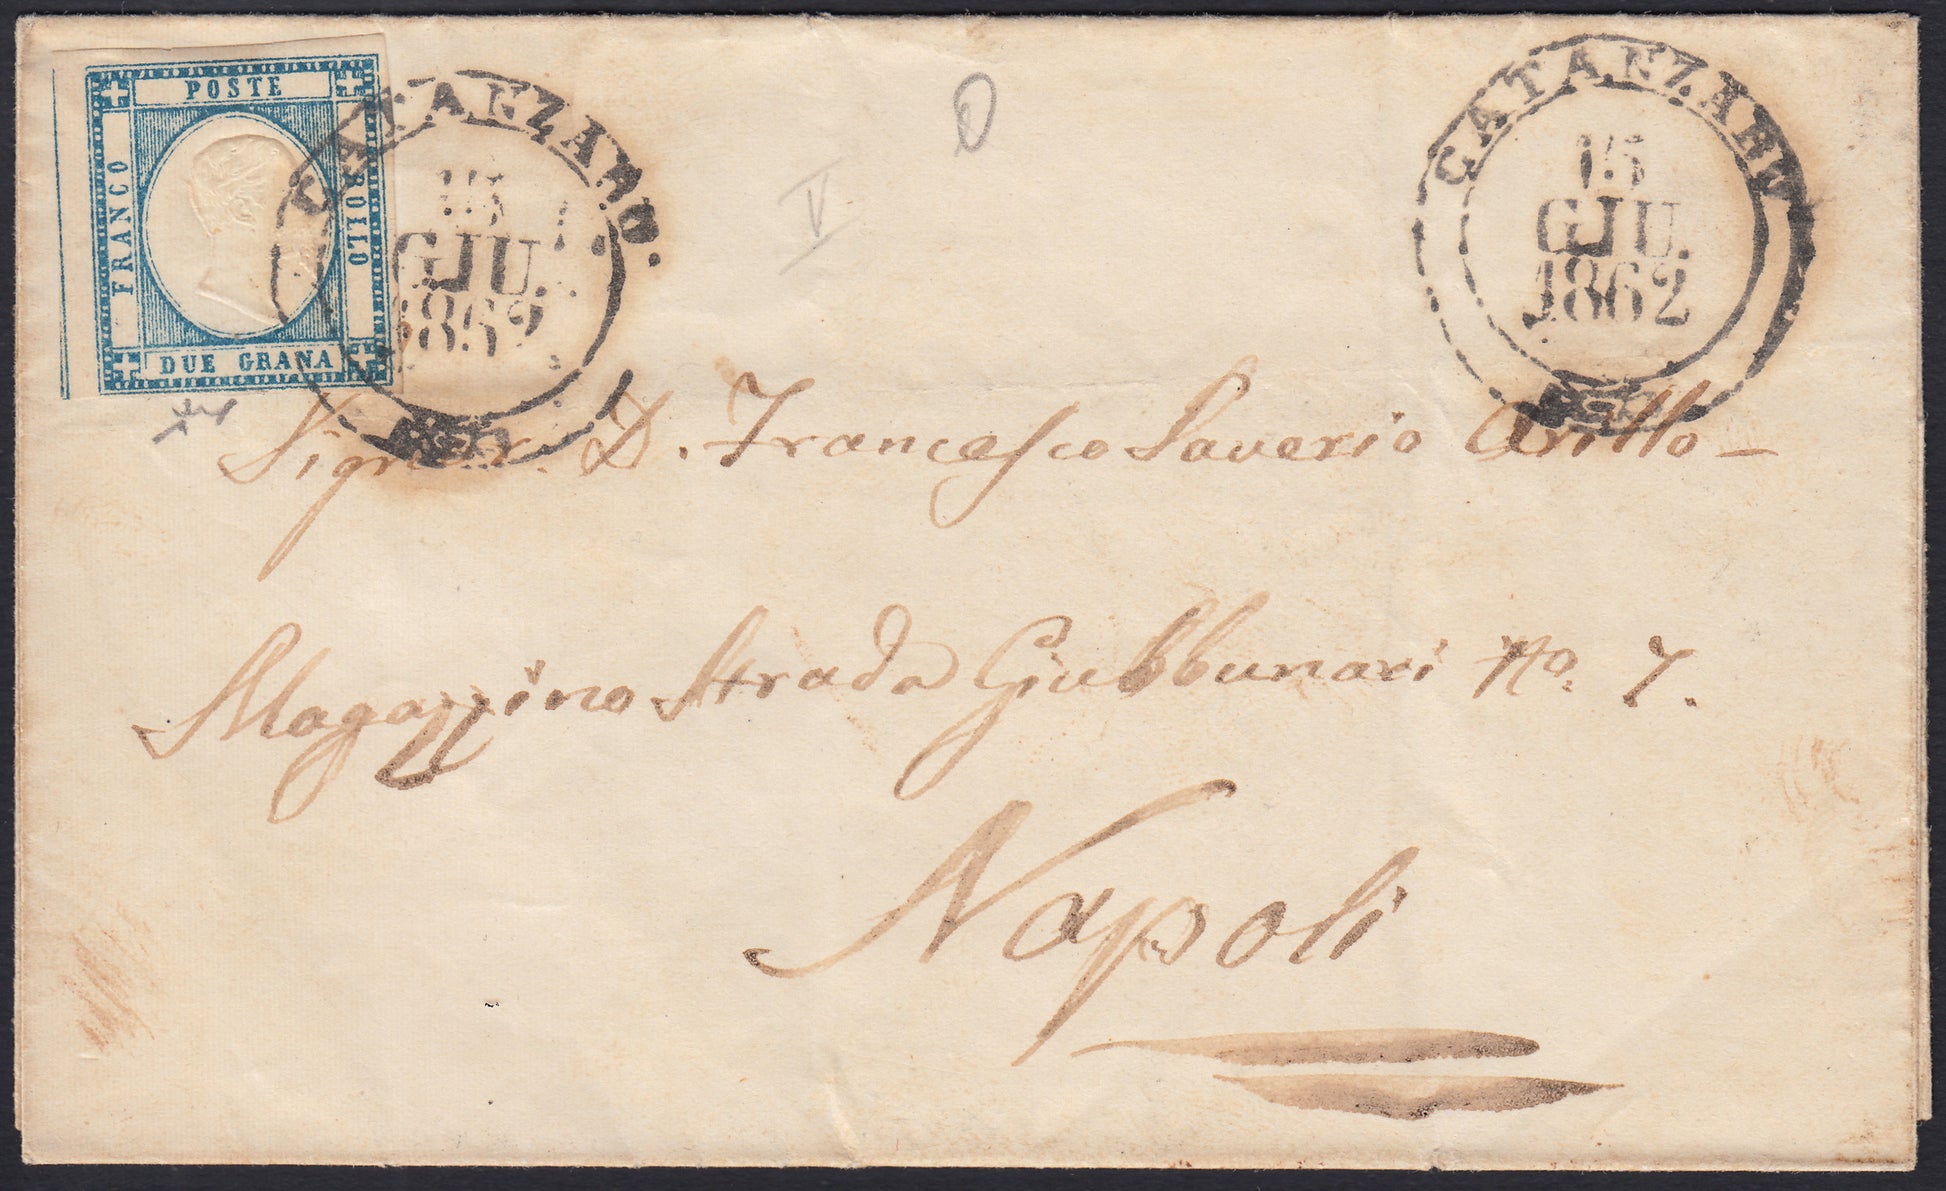 POSTE
FRANCO
BOLLO
DUE GRANA
CATANZARO.
15
GIU.
1862
CATANZARO
15
GIU.
1862
V
Signor D. Francesco Saverio Arillo
Magazzino Strada Giubbunari No. 7.
Napoli